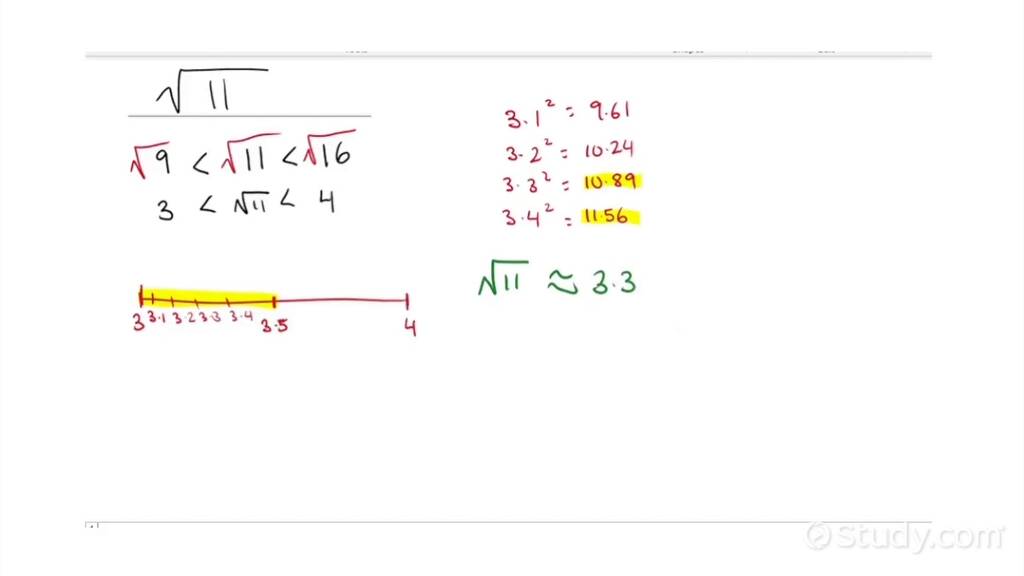 √11
√9 < √11 < √16
3 < √11 < 4
3 3.1 3.2 3.3 3.4 3.5 4
3.1² = 9.61
3.2² = 10.24
3.3² = 10.89
3.4² = 11.56
√11 ≈ 3.3
Study.com